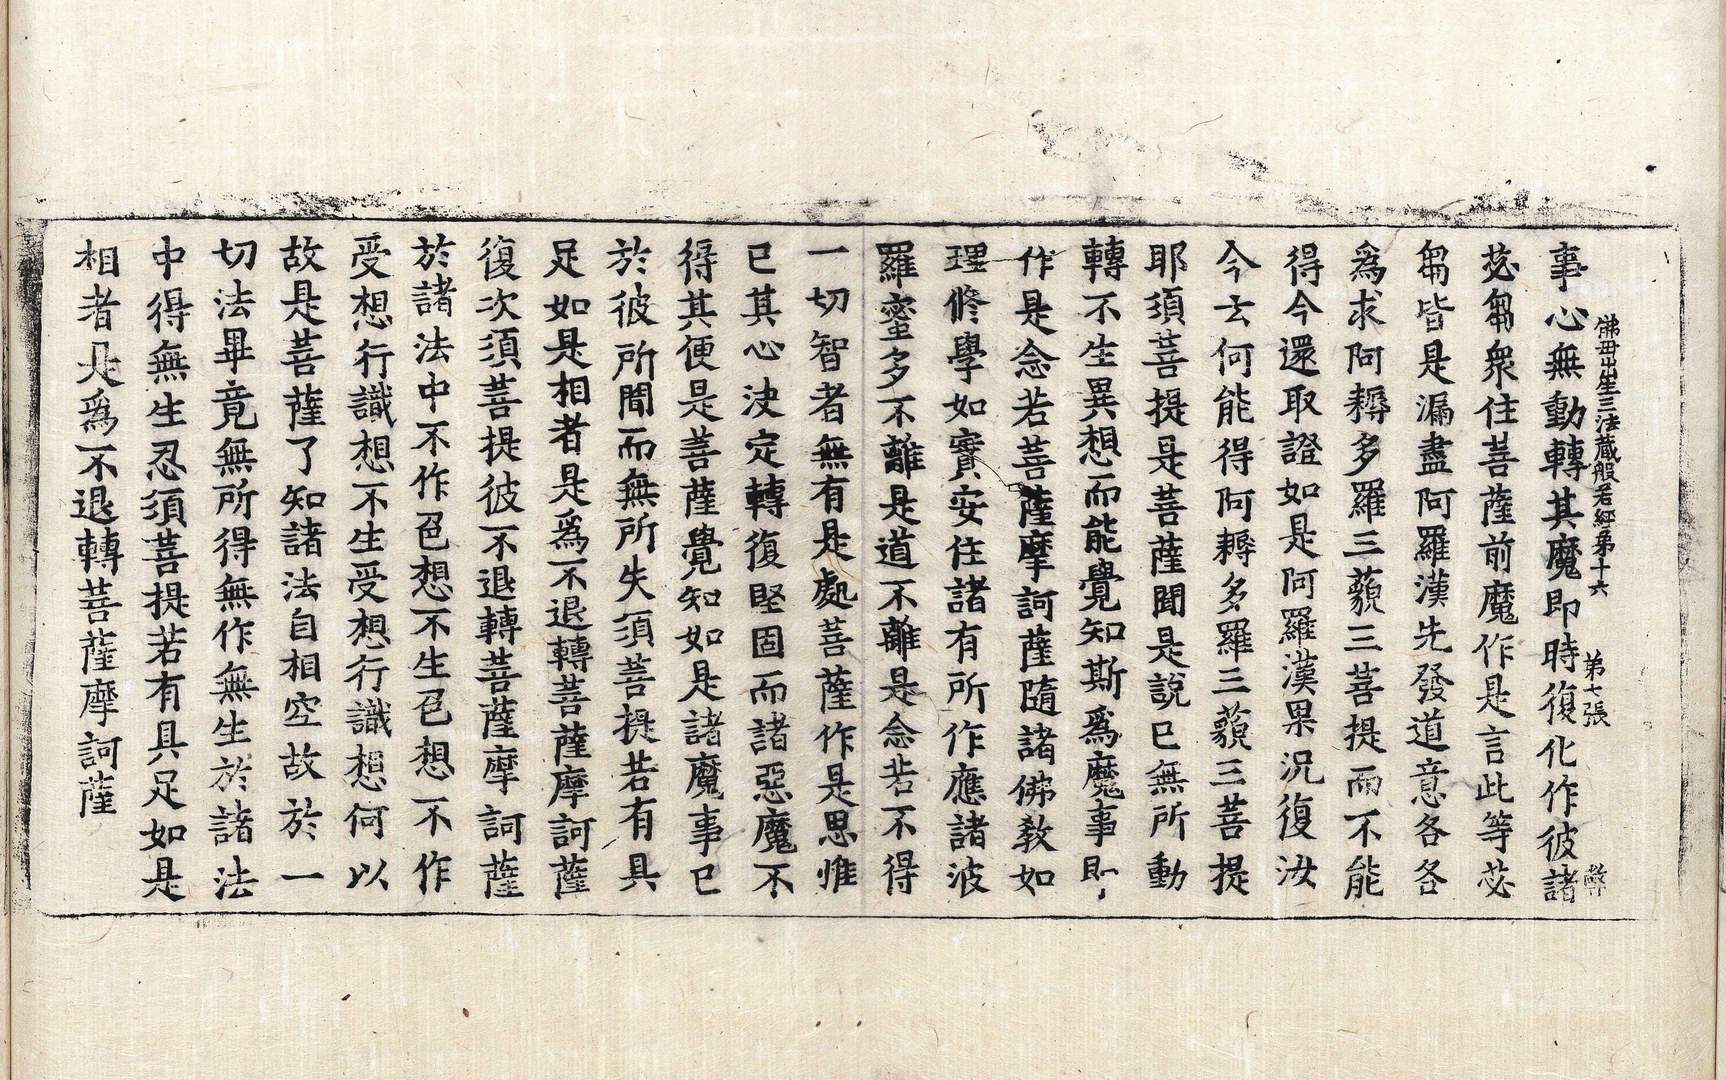 佛母出生三法藏般若經第十六 第七張 弊
事心無動轉其魔即時復化作彼諸
苾芻衆住菩薩前魔作是言此等苾
芻皆是漏盡阿羅漢先發道意各各
爲求阿耨多羅三藐三菩提而不能
得今還取證如是阿羅漢果況復汝
今云何能得阿耨多羅三藐三菩提
耶須菩提是菩薩聞是說已無所動
轉不生異想而能覺知斯爲魔事即
作是念若菩薩摩訶薩隨諸佛教如
理修學如實安住諸有所作應諸波
羅蜜多不離是道不離是念若不得
一切智者無有是處菩薩作是思惟
已其心決定轉復堅固而諸惡魔不
得其便是菩薩覺知如是諸魔事已
於彼所聞而無所失須菩提若有具
足如是相者是爲不退轉菩薩摩訶薩
復次須菩提彼不退轉菩薩摩訶薩
於諸法中不作色想不生色想不作
受想行識想不生受想行識想何以
故是菩薩了知諸法自相空故於一
切法畢竟無所得無作無生於諸法
中得無生忍須菩提若有具足如是
相者是爲不退轉菩薩摩訶薩